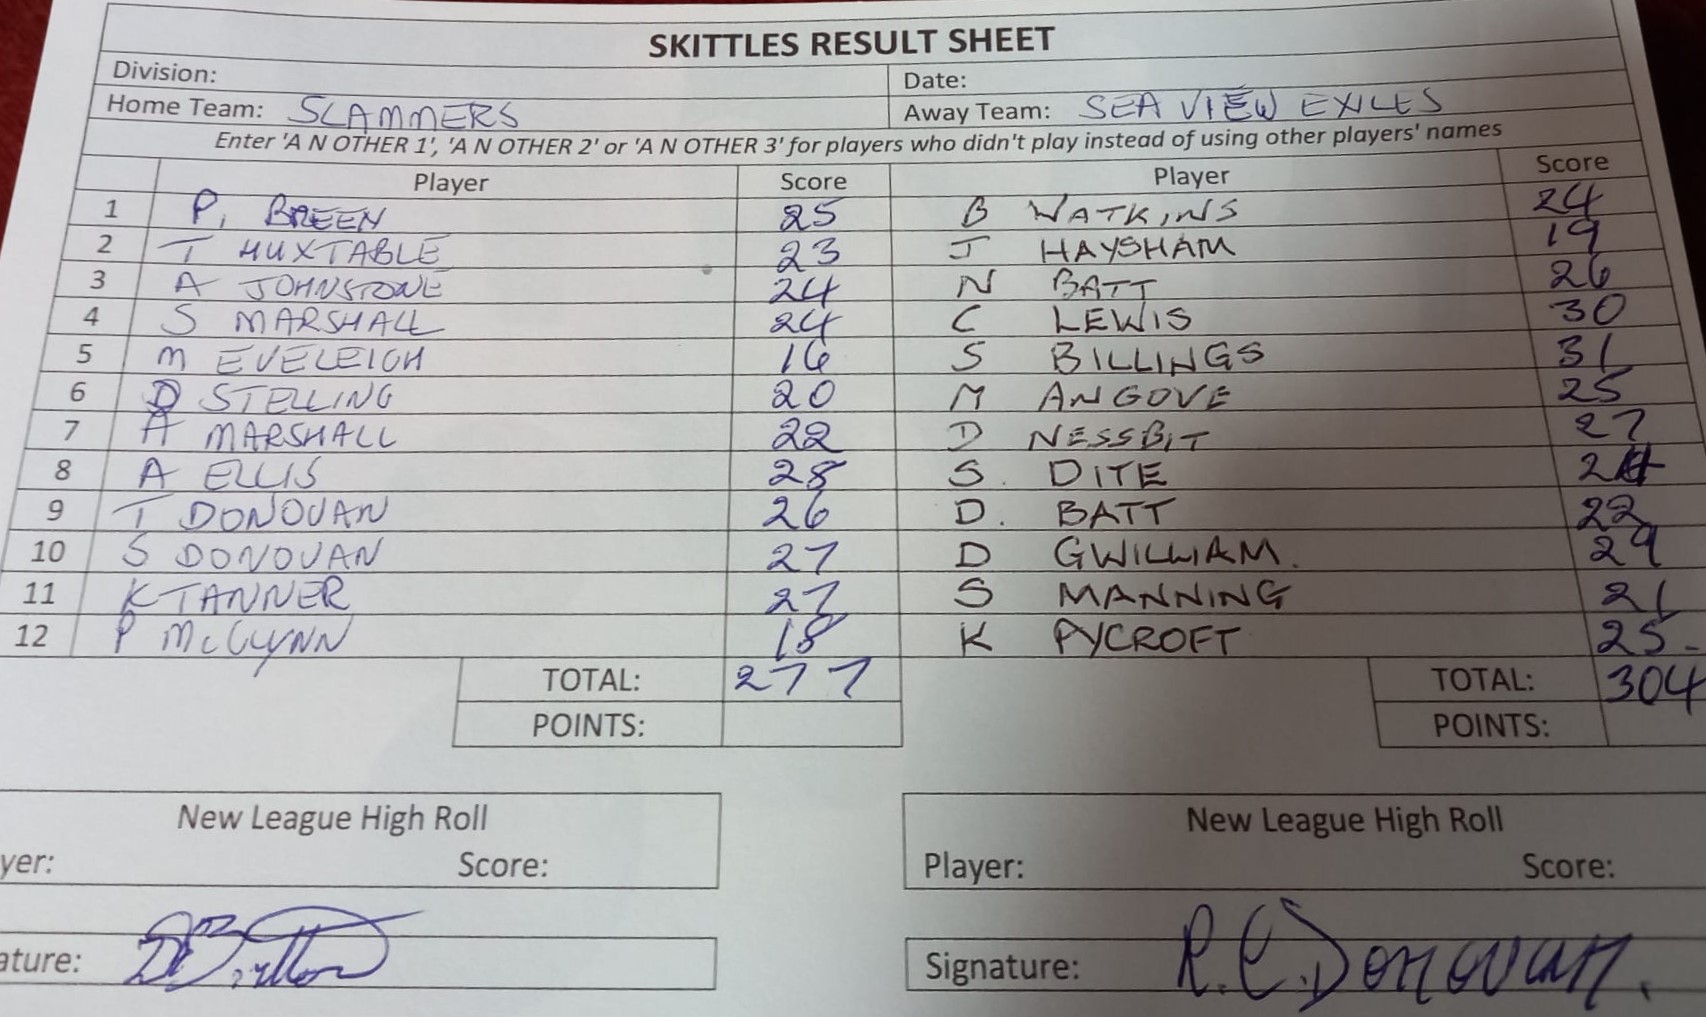 SKITTLES RESULT SHEET
Division: Date:
Home Team: SLAMMERS Away Team: SEA VIEW EXILES
Enter 'A N OTHER 1', 'A N OTHER 2' or 'A N OTHER 3' for players who didn't play instead of using other players' names
Player Score Player Score
1 P, BREEN 25 B WATKINS 24
2 T HUXTABLE 23 J HAYSHAM 19
3 A JOHNSTONE 24 N BATT 26
4 S MARSHALL 24 C LEWIS 30
5 M EVELEIGH 16 S BILLINGS 31
6 D STELLING 20 M ANGOVE 25
7 A MARSHALL 22 D NESSBIT 27
8 A ELLIS 28 S. DITE 24
9 T DONOVAN 26 D. BATT 22
10 S DONOVAN 27 D GWILLIAM. 29
11 K TANNER 27 S MANNING 21
12 P McGLYNN 18 K PYCROFT 25
TOTAL: 277 TOTAL: 304
POINTS: POINTS:
New League High Roll New League High Roll
yer: Score: Player: Score:
ature: Signature: R.C. Donovan.